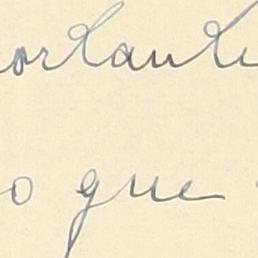 ortanti
o que